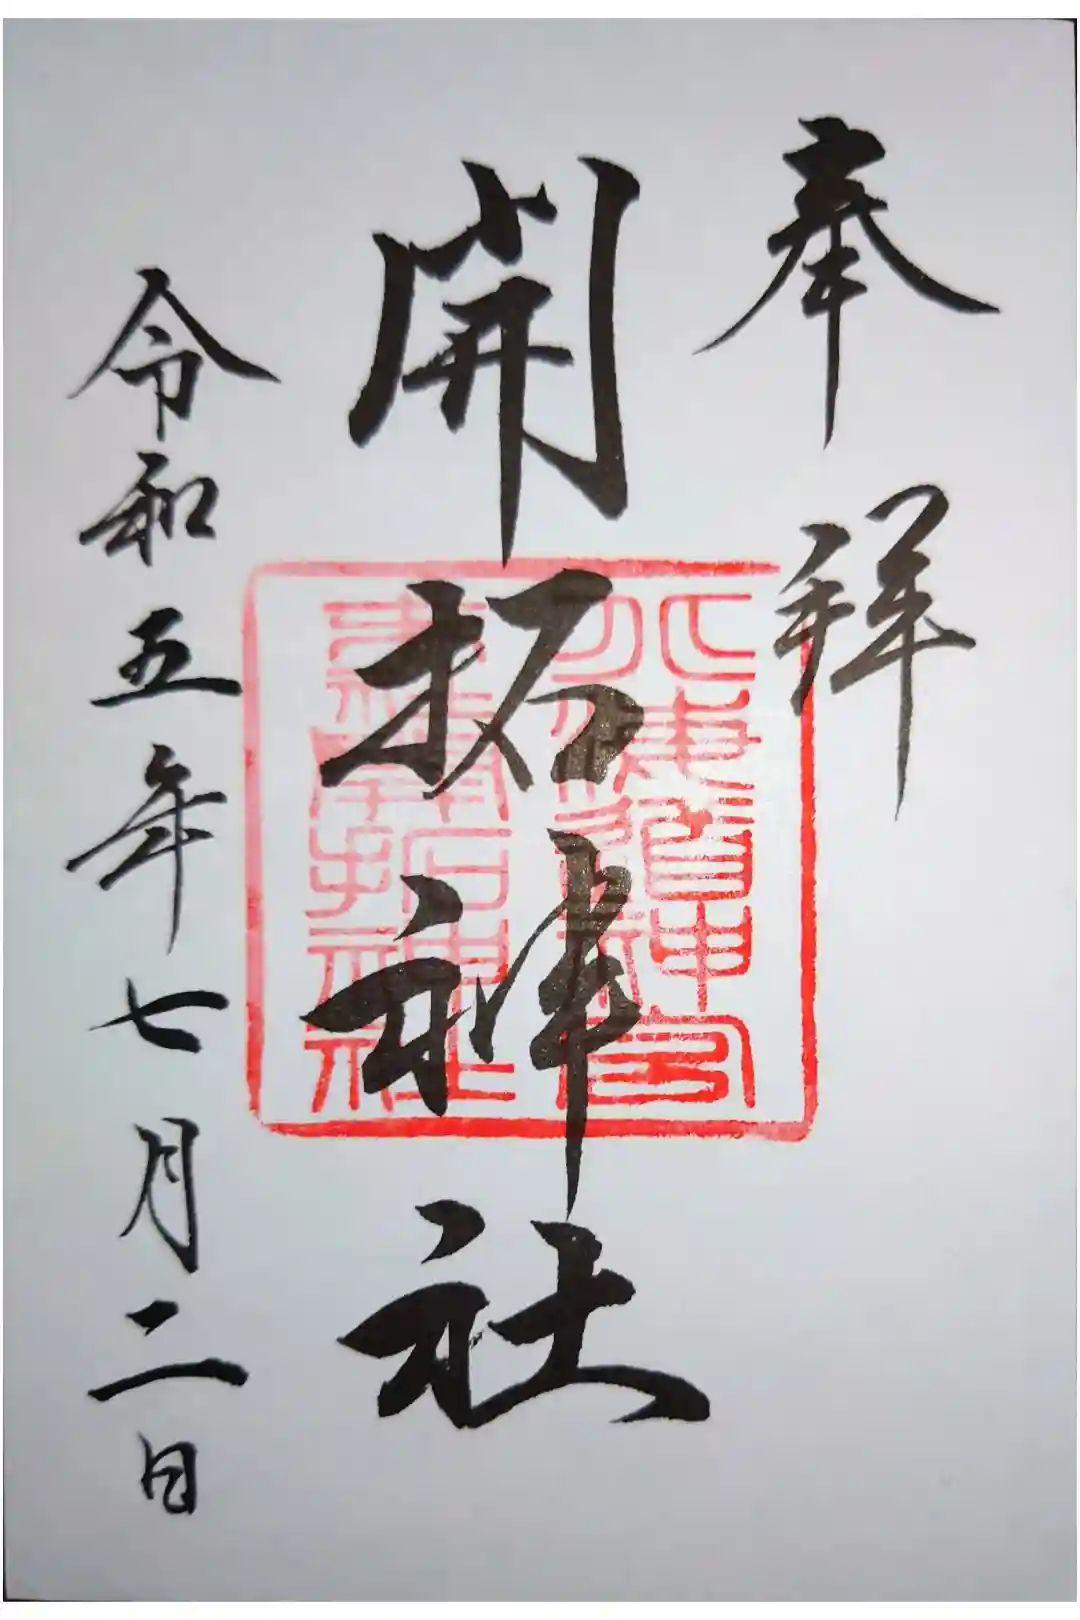 奉拝
開拓神社
北海道神宮
末社開拓神社
令和五年七月二日